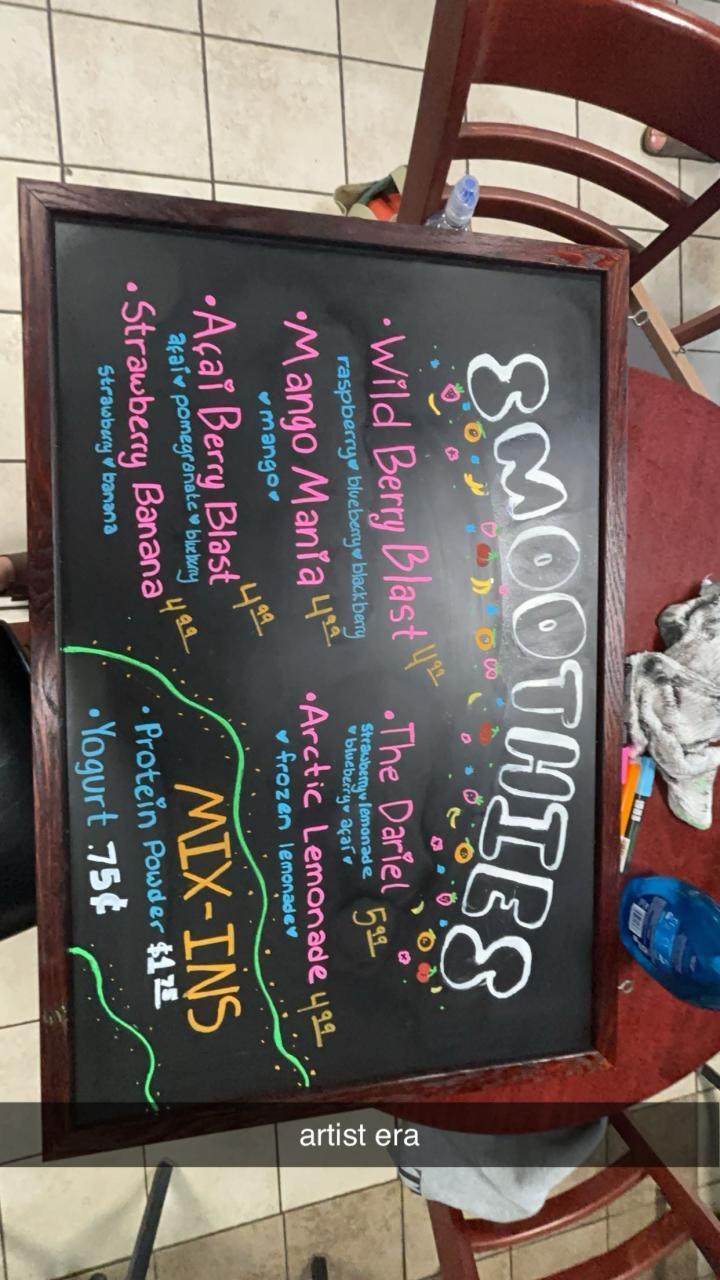 SMOOTHIES
• Wild Berry Blast 4.99
raspberry ♥ blueberry ♥ blackberry
• Mango Mania 4.99
♥ mango ♥
• Açaí Berry Blast 4.99
açaí ♥ pomegranate ♥ blueberry
• Strawberry Banana 4.99
strawberry ♥ banana
• The Dariel 5.99
strawberry ♥ lemonade
♥ blueberry ♥ açaí ♥
• Arctic Lemonade 4.99
♥ frozen lemonade ♥
MIX-INS
• Protein Powder $1.75
• Yogurt .75¢
artist era